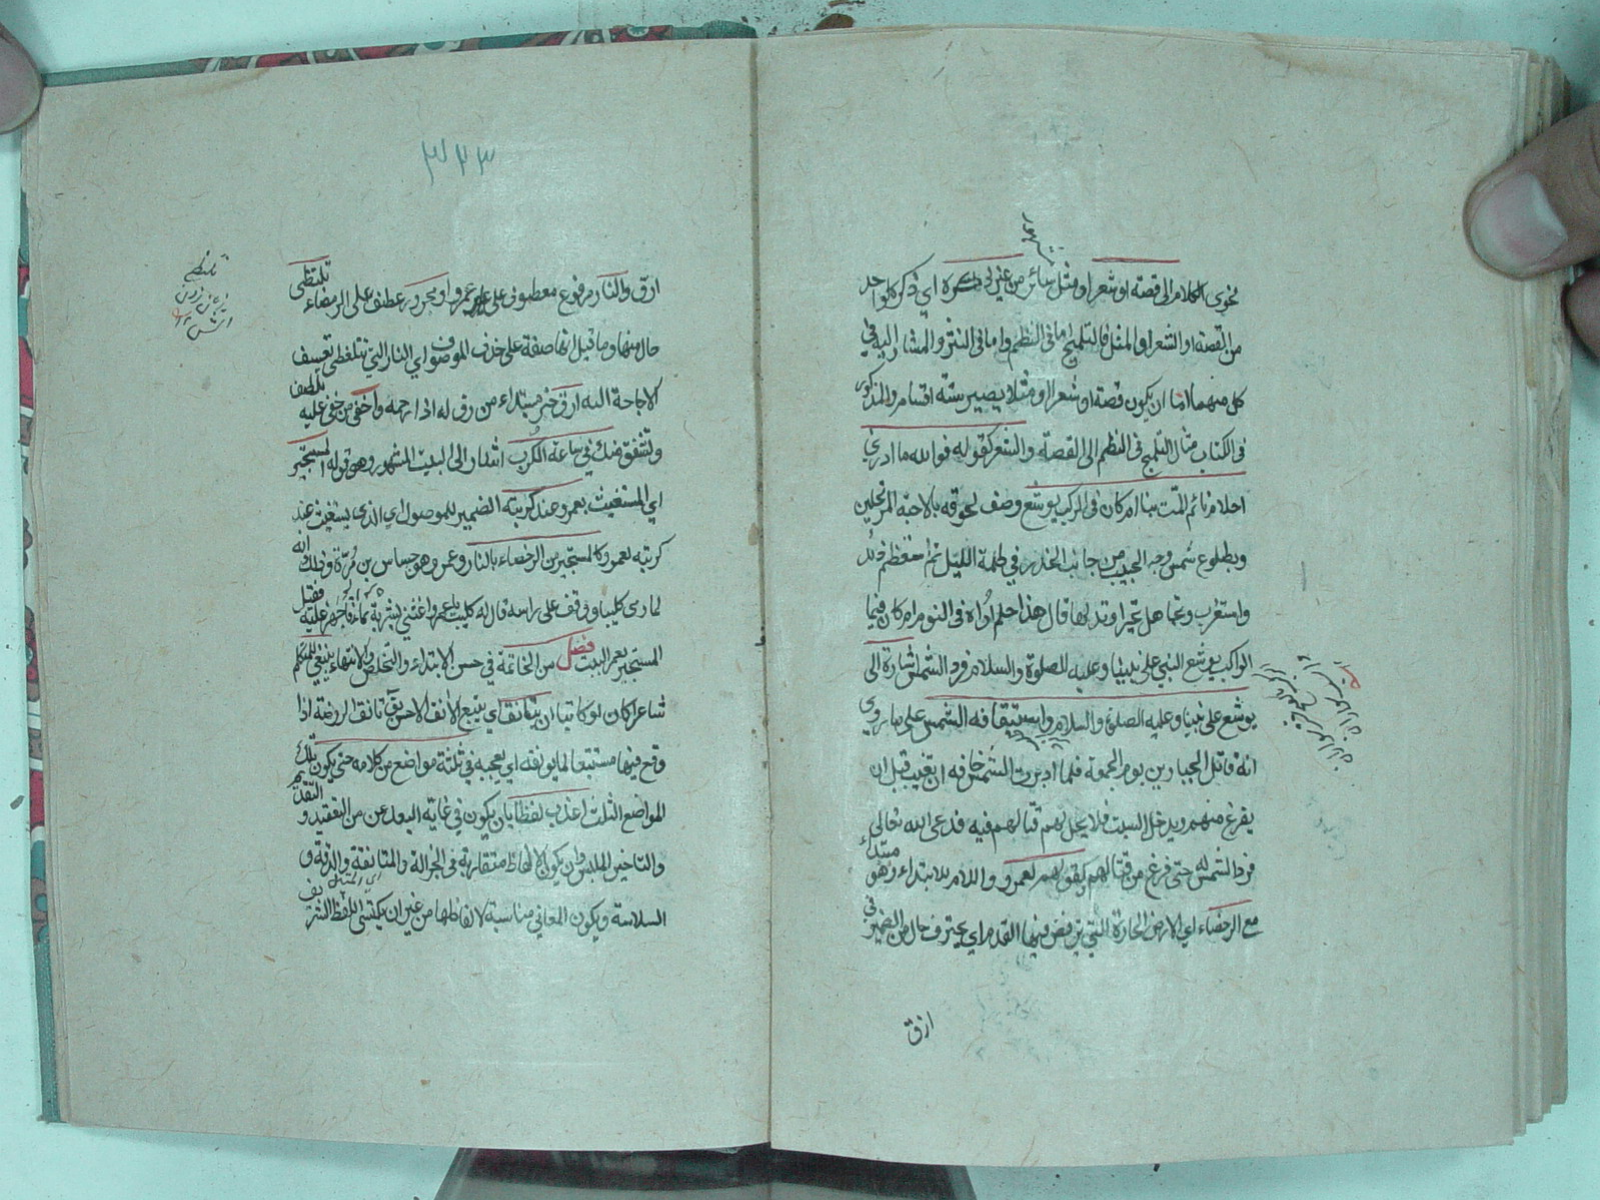 فحوى الكلام الى قصة او شعر او مثل سائر من غير ذكره اي ذكر كل واحد
من القصة او الشعر او المثل فالتلميح اما فى النظم واما فى النثر والمشار اليه في
كل منهما اما ان يكون قصة او شعرا او مثلا يصير ستة اقسام والمذكور
فى الكتاب مثال التلميح فى النظم الى القصة والشعر كقوله فوالله ما ادري
احلام نائم المت بنا ام كان فى الركب يوشع وصف لحوقه بالاحبة المرتحلين
وطلوع شمس وجه الحبيب من جانب الخدر في ظلمة الليل ثم استعظم ذلك
واستغرب وتجاهل تحيرا وتدلها قال هذا حلم اراه فى النوم ام كان فيما
الراكب يوشع النبي على نبينا وعليه الصلوة والسلام فرد الشمس اشارة الى
يوشع على نبينا وعليه الصلوة والسلام واستيقافه الشمس على ما روي
انه قاتل الجبارين يوم الجمعة فلما ادبرت الشمس خاف ان تغيب قبل ان
يفرغ منهم ويدخل السبت فلا يحل لهم قتالهم فيه فدعى الله تعالى
فرد الشمس له حتى فرغ من قتالهم وكقولهم لعمرو واللام للابتداء وهو مبتداء
مع الرمضاء اي الارض الحارة التي ترمض فيها القدم اي يحترق حال من الضمير في
ارق
٣٢٣
ارق والنار مرفوع معطوف على عمرو او مجرور عطف على الرمضاء تلتظى
حال منها وما قيل انها صفة على حذف الموصوف اي النار التي تلتظى تعسف
لا حاجة اليه ارق خبر مبتداء من رق له اذا رحمه واحفى من حفى عليه تلطف
وتشفق منك في ساعة الكرب اشار الى البيت المشهور وهو قوله المستجير
اي المستغيث بعمرو عند كربته الضمير للموصول اي الذي يستغيث عند
كربته بعمرو كالمستجير من الرمضاء بالنار وعمرو هو جساس بن مرة وذلك انه
لما رمى كليبا ووقف على راسه قال له كليب يا عمرو اغثنى بشربة ماء فاجهز عليه فقيل
المستجير بعمرو البيت فصل من الخاتمة في حسن الابتداء والتخلص والانتهاء ينبغي للمتكلم
شاعرا كان او كاتبا ان يتانق اي يتبع الانق الاحسن يق تانق الروضة اذا
وقع فيها متتبعا لما يونقه اي يعجبه في ثلثة مواضع من كلامه حتى يكون تلك
المواضع الثلث اعذب لفظا بان يكون في غاية البعد عن التعقيد و التقديم
والتاخير الملبس وان يكون الالفاظ متقاربة فى الجزالة والمتانة والرقة و
السلاسة ويكون المعاني مناسبة لالفاظها من غير ان يكتسى اللفظ الشريف